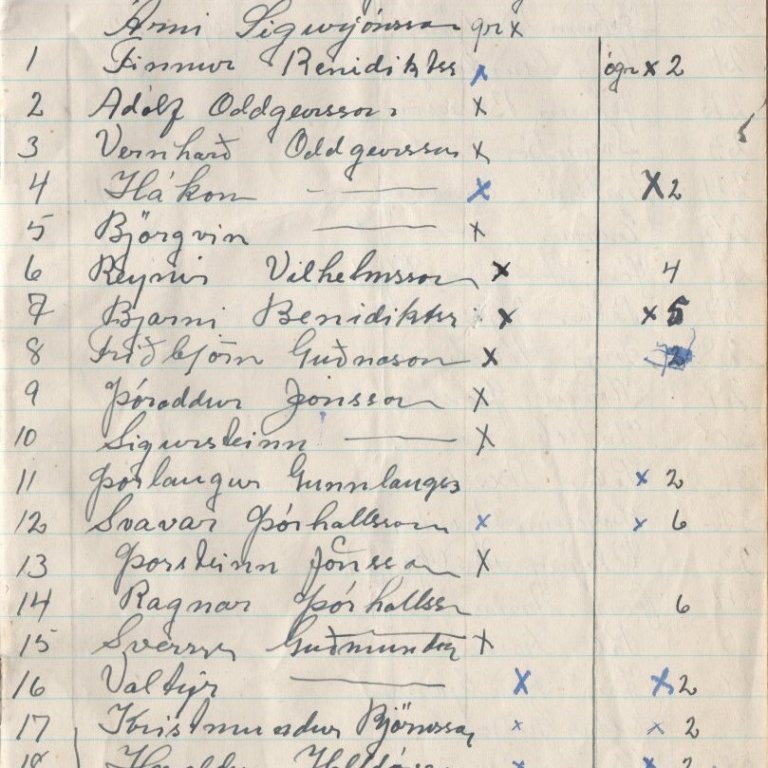 Árni Sigurjónsson gr x
1 Finnur Benidiktss x ógr x 2
2 Adólf Oddgeirsson x
3 Vernharð Oddgeirsson x
4 Hákon - — x X 2
5 Björgvin — x
6 Reynir Vilhelmsson x 4
7 Bjarni Benidiktss x x 5
8 Friðbjörn Guðnason x 2
9 Þóroddur Jónsson x
10 Sigursteinn — x
11 Þórlaugur Gunnlaugss x 2
12 Svavar Þórhallsson x x 6
13 Þorsteinn Jónsson x
14 Ragnar Þórhallss 6
15 Sverrir Guðmundss x
16 Valtýr — x x 2
17 Kristmundur Björnsson x x 2
18 x x 2